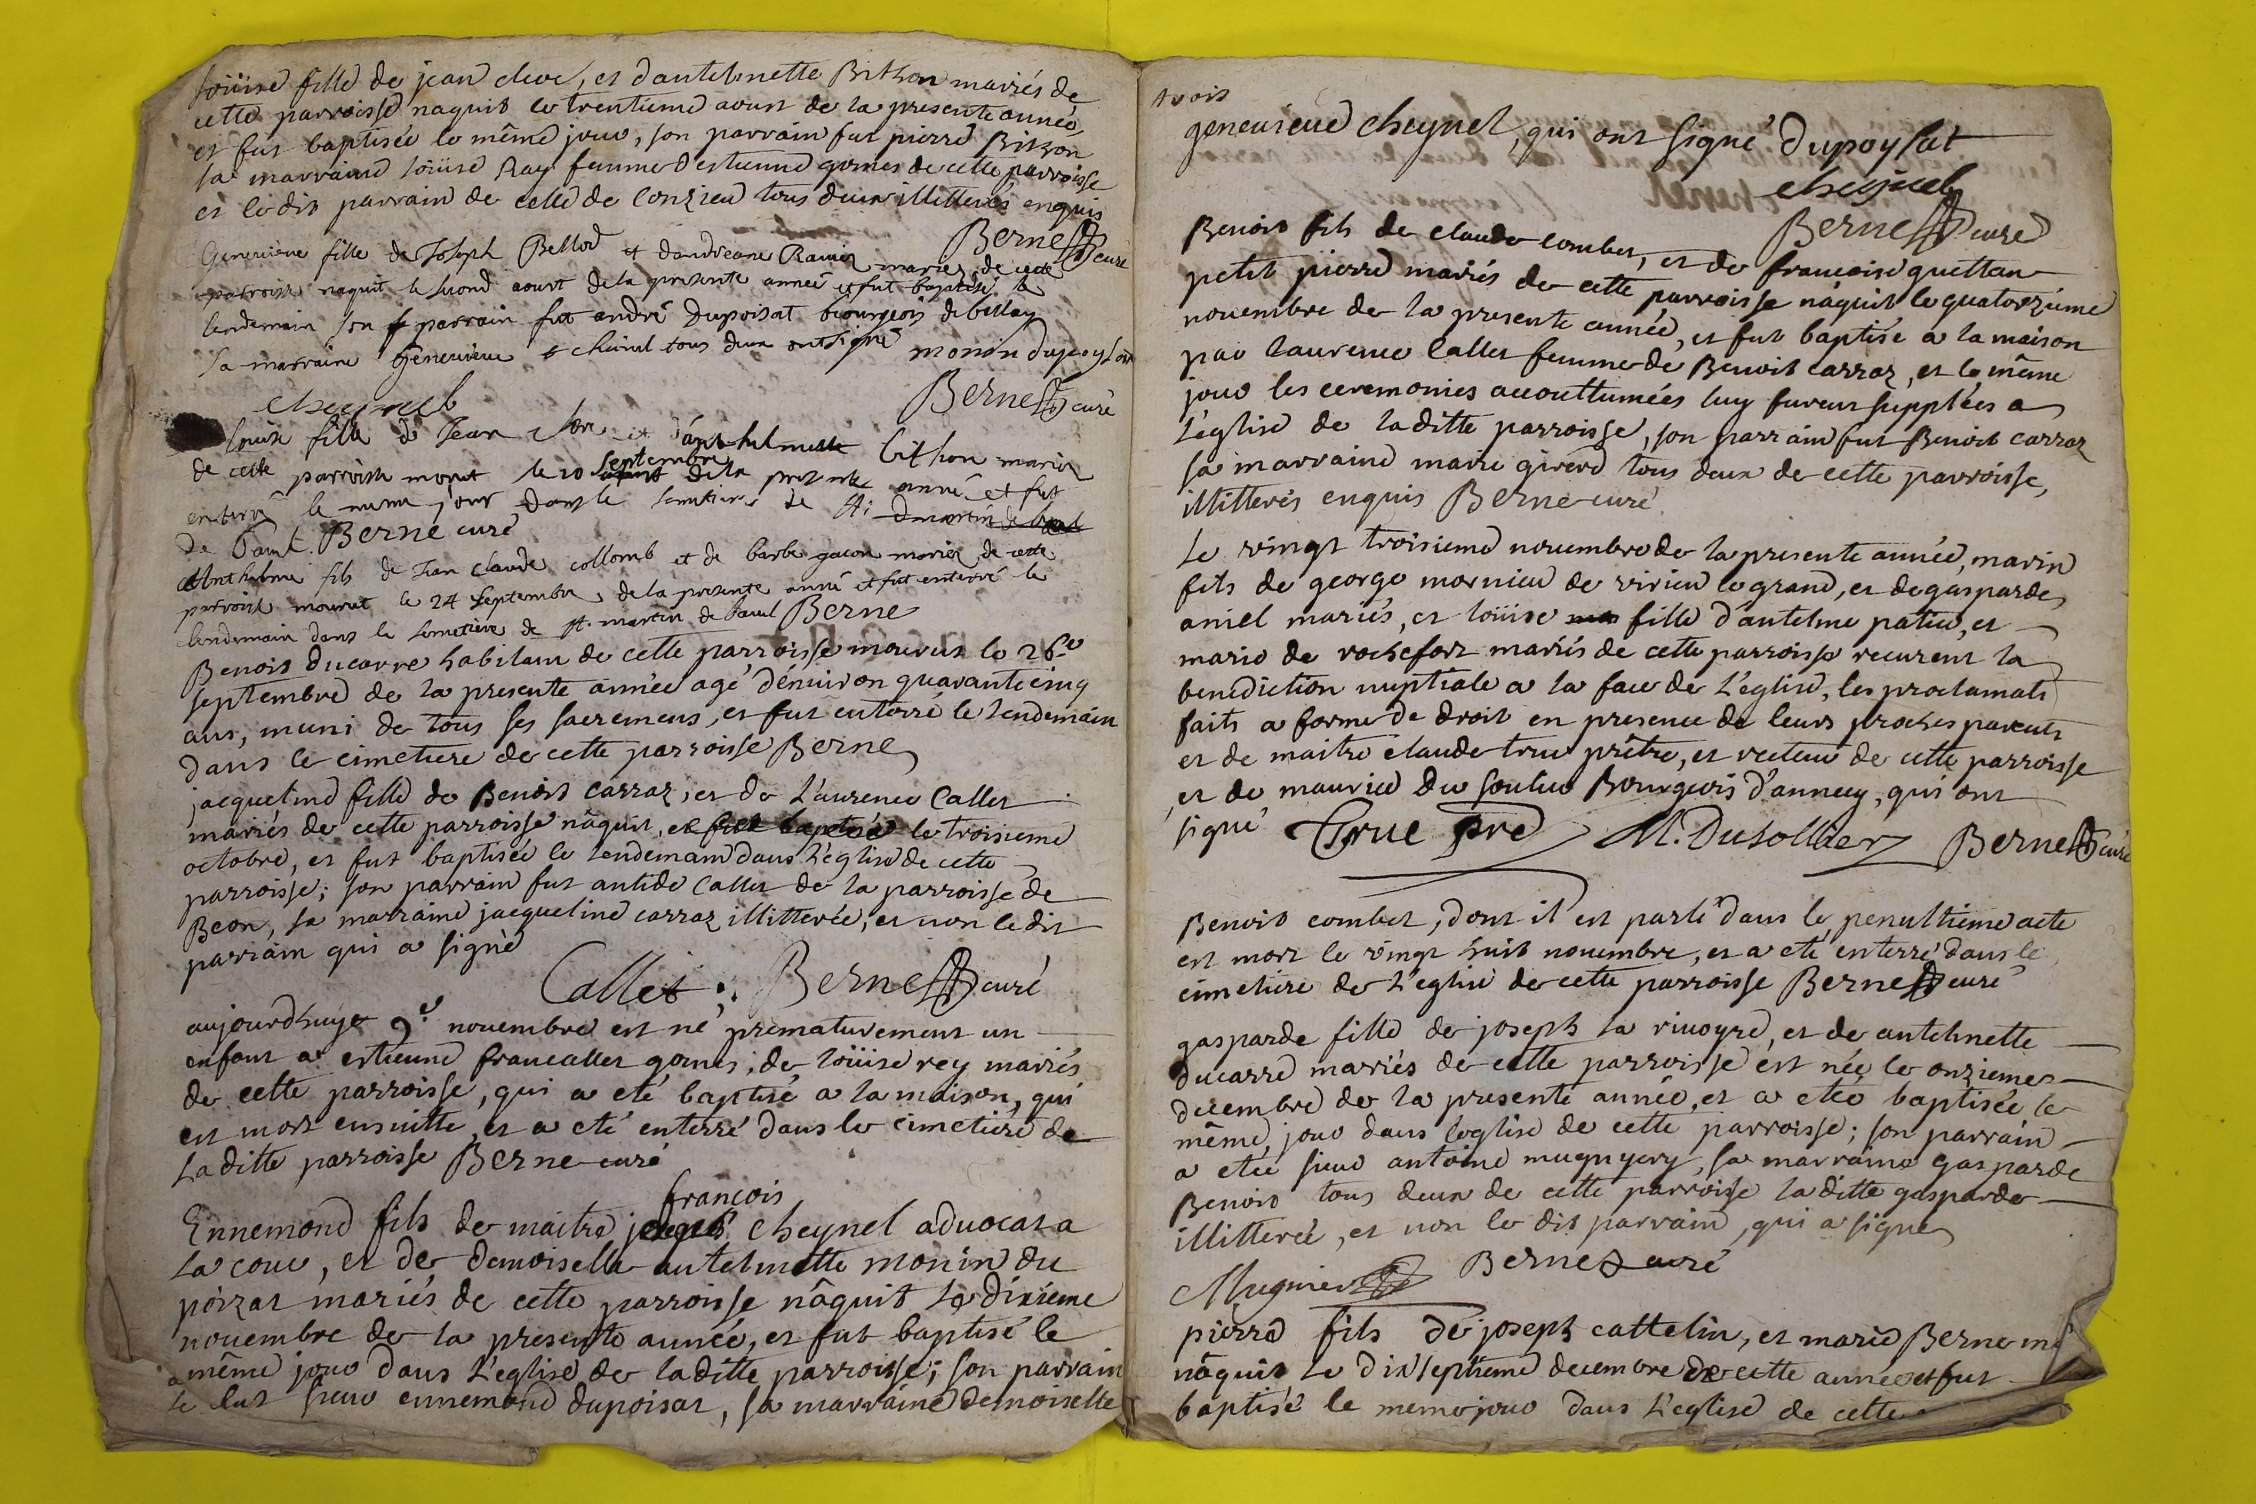 loüise fille de jean cleve, et d'antelmette Bithon mariés de
cette parroisse naquit le trentieme aoust de la presente année
et fut baptisée le même jour, son parrain fut pierre Bithon
sa marraine loüise Ray femme d'estienne gomes de cette parroisse
et le dit parrain de celle de Conzieu tous deux illitterés enquis
Berne curé
Genevieve fille de Joseph Bellod et dandreane Ramel mariez de cette
parroisse naquit le second aoust de la presente année et fut baptisée le
lendemain son parrain fut andré Dupoisat bourgeois de bellay
sa marraine Genevieve cheinel tous deux ont signé monin dupoysat
cheynel Berne curé
louise fille de Jean et d'anthelmette bithon mariez
de cette parroisse morut le 20 septembre de la presente année et fut
enterré le meme jour dans le semitiere de St
de Paul. Berne curé
Anthelme fils de Jean Claude collomb et de barbe gacon mariez de cette
parroisse mourut le 24 septembre de la presente anné et fut enterré le
lendemain dans le semetiere de St. martin de Paul Berne
Benoit ducarre habitant de cette parroisse mourut le 26e
septembre de la presente année agé d'environ quarantecinq
ans, muni de tous ses sacremens, et fut enterré le lendemain
dans le cimetiere de cette parroisse Berne
jacqueline fille de Benoit carraz, et de L'aurence Callet
mariés de cette parroisse nâquit, et fut baptisée le troisieme
octobre, et fut baptisée le lendemain dans L'église de cette
parroisse; son parrain fut antide Callet de la parroisse de
Beon, sa marraine jacqueline carraz illitterée, et non le dit
parrain qui a signé
Callet Berne curé
aujourdhuye 9e novembre est né prematurement un
enfant a estienne francallet gomes, de loüise rey mariés
de cette parroisse, qui a eté baptisé a la maison, qui
est mort ensuitte, et a eté enterré dans le cimetiere de
la ditte parroisse Berne curé
françois
Ennemond fils de maitre Cheynel advocat a
La cour, et de demoiselle antelmette monin du
poizat mariés de cette parroisse nâquit Le dixieme
novembre de la presente année, et fut baptisé le
même jour dans L'eglise de la ditte parroisse; son parrain
fut sieur ennemond dupoisat, sa marraine demoiselle
genevieve cheynel, qui ont signé dupoysat
cheynel
Berne curé
Benoit fils de claude combet, et de francoise guettan
petit pierre mariés de cette parroisse nâquit le quatorzieme
novembre de la presente année, et fut baptisé a la maison
par laurence Callet femme de Benoit carraz, et le même
jour les ceremonies accouttumées luy furent supplées a
L'église de la ditte parroisse, son parrain fut Benoit carraz
sa marraine marie girerd tous deux de cette parroisse,
illitterés enquis Berne curé
Le vingt troisieme novembre de la presente année, marin
fils de george mornieu de virieu le grand, et de gasparde
aniel mariés, et loüise fille d'antelme patiu, et
marie de rochefort mariés de cette parroisse recurent la
benediction nuptiale a la face de L'église, les proclamats
faits a forme de droit en presence de leurs proches parents
et de maitre claude true prêtre, et recteur de cette parroisse
et de maurice du soulier Bourgeois d'annecy, qui ont
signé True pre M. Dusollier Berne curé
Benoit combet, dont il est parlé dans le penultieme acte
est mort le vingt huit novembre, et a eté enterré dans le
cimetiere de L'eglise de cette parroisse Berne curé
gasparde fille de joseph la rivoyre, et de antelmette
ducarre mariés de cette parroisse est née le onzieme
decembre de la presente année, et a etée baptisée le
même jour dans l'eglise de cette parroisse; son parrain
a eté sieur antoine mugnyery, sa marraine gasparde
Benoit tous deux de cette parroisse la ditte gasparde
illitterée, et non le dit parrain, qui a signé
Mugnier Berne curé
pierre fils de joseph cattelin, et marie Berne
nâquit le dixseptieme decembre de cette année et fut
baptisé le meme jour dans L'eglise de cette